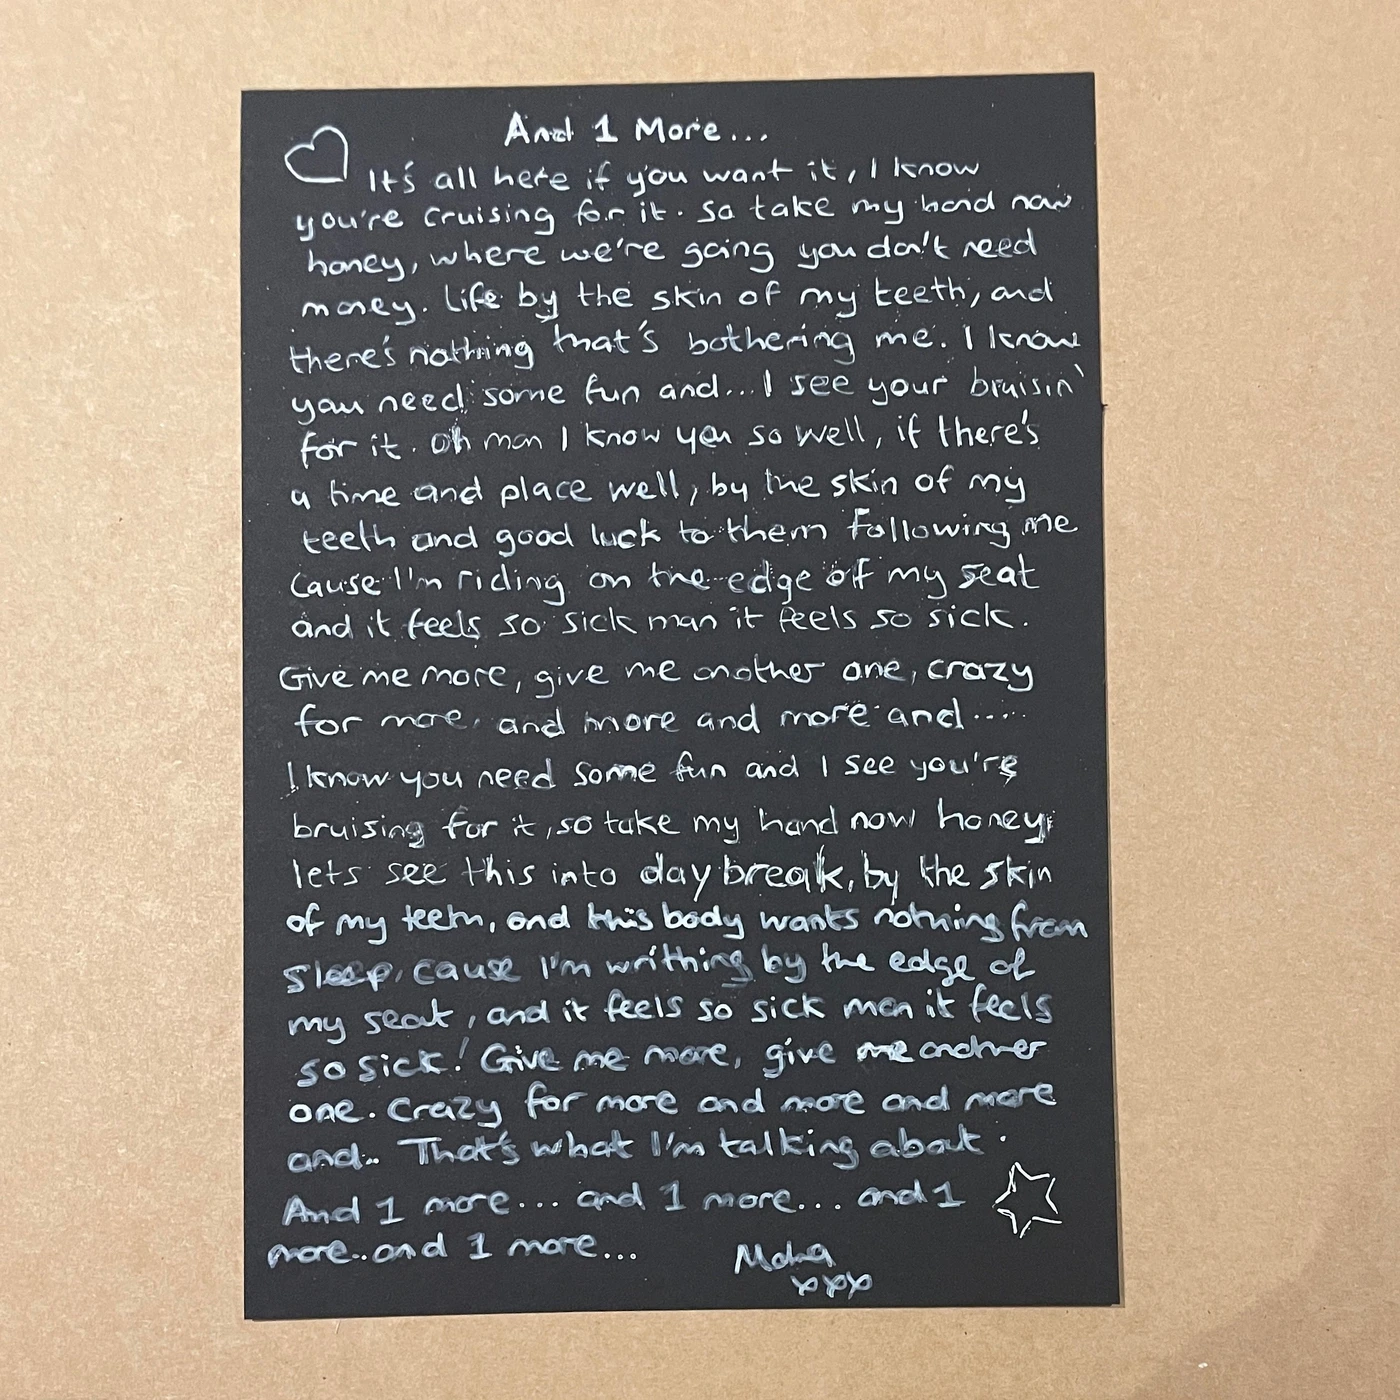 And 1 More...
It's all here if you want it, I know
you're cruising for it. So take my hand now
honey, where we're going you don't need
money. Life by the skin of my teeth, and
there's nothing that's bothering me. I know
you need some fun and... I see your bruisin'
for it. Oh man I know you so well, if there's
a time and place well, by the skin of my
teeth and good luck to them following me
cause I'm riding on the edge of my seat
and it feels so sick man it feels so sick.
Give me more, give me another one, crazy
for more, and more and more and.....
I know you need some fun and I see you're
bruising for it, so take my hand now honey,
lets see this into daybreak, by the skin
of my teeth, and this body wants nothing from
sleep, cause I'm writhing by the edge of
my seat, and it feels so sick man it feels
so sick! Give me more, give me another
one. Crazy for more and more and more
and... That's what I'm talking about.
And 1 more... and 1 more... and 1
more.. and 1 more...
xxx